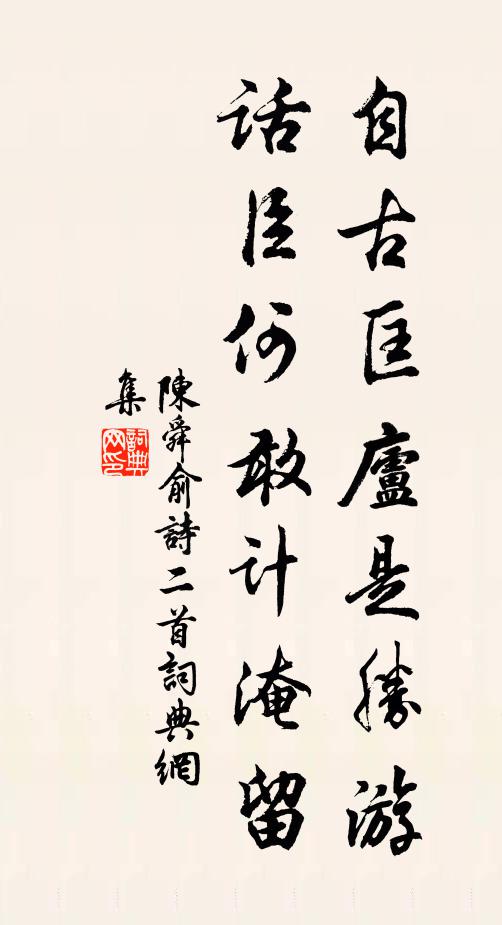 自古匡廬是勝游
話臣何敢計淹留
陳舜俞詩二首詞典網
集
詞典网印